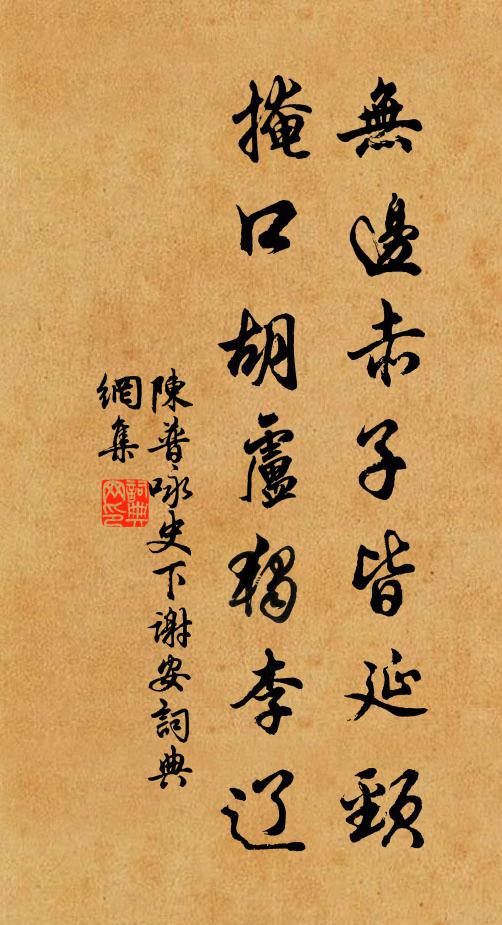 無邊赤子皆延頸
掩口胡盧獨李辽
陳普咏史下谢安詞典
網集
詞典
网印